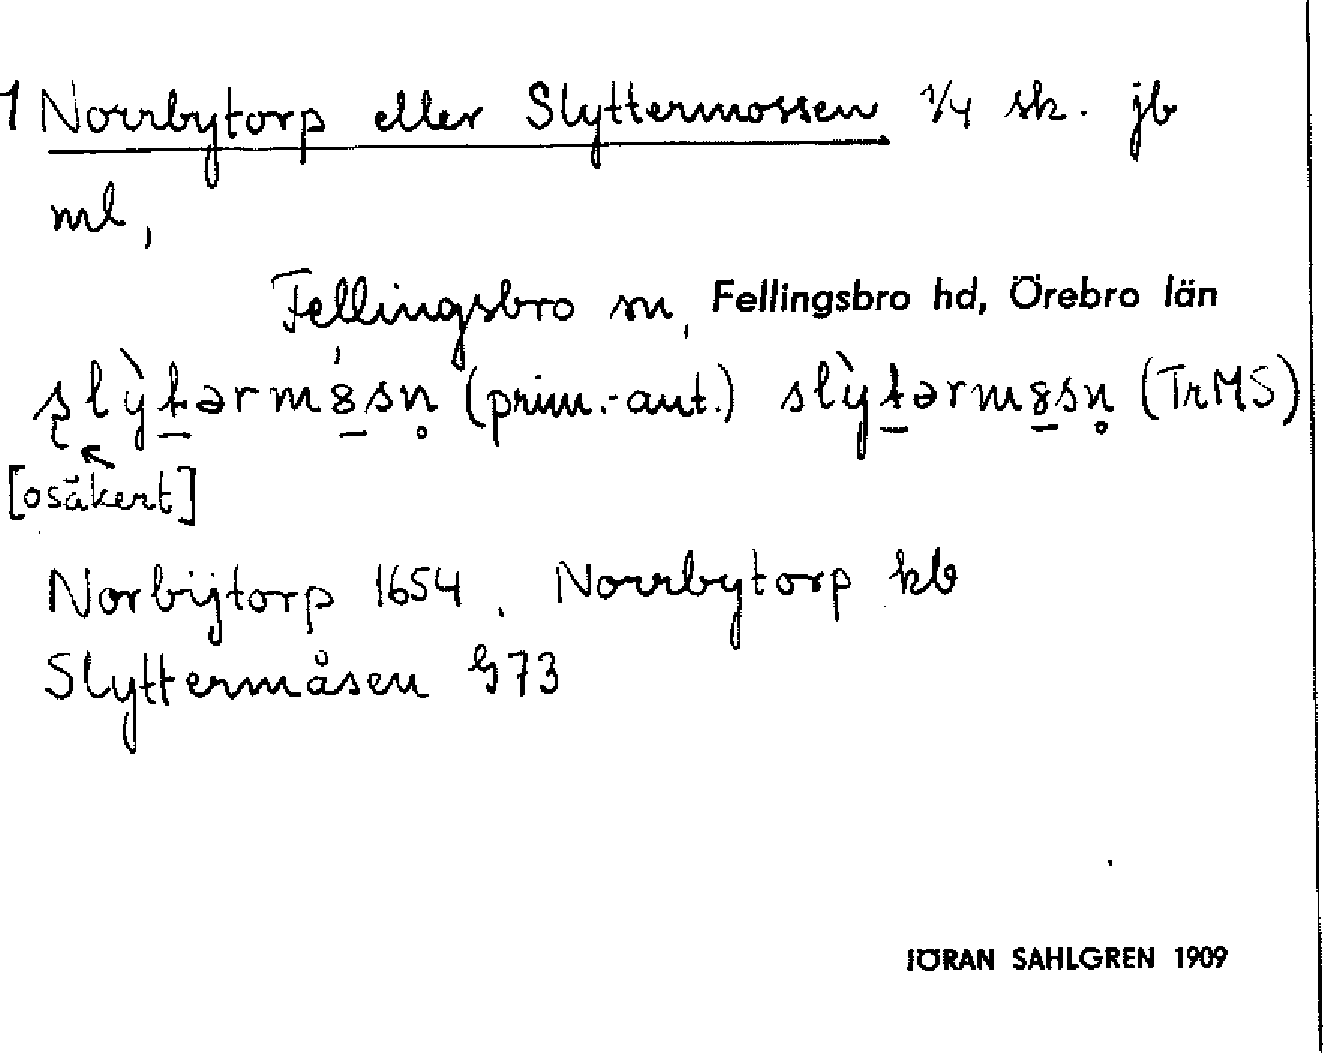 1 Norrbytorp eller Slyttermossen 1/4 sk. jb
ml,
Fellingsbro sn, Fellingsbro hd, Örebro län
(prim.-aut.) (TrMS)
[osäkert]
Norbijtorp 1654. Norrbytorp kb
Slyttermåsen G73
JÖRAN SAHLGREN 1909